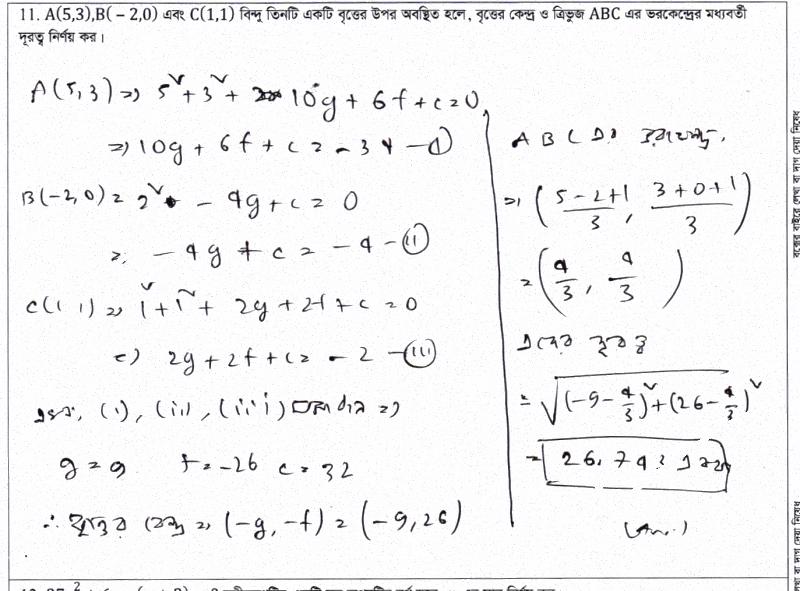 11. A(5,3),B(−2,0) এবং C(1,1) বিন্দু তিনটি একটি বৃত্তের উপর অবস্থিত হলে, বৃত্তের কেন্দ্র ও ত্রিভুজ ABC এর ভরকেন্দ্রের মধ্যবর্তী
দূরত্ব নির্ণয় কর।
A(5,3) ⇒ 5² + 3² + 10g + 6f + c = 0
⇒ 10g + 6f + c = -34 —(i)
B(-2,0) = 2² - 4g + c = 0
⇒ -4g + c = -4 —(ii)
C(1 1) ⇒ 1² + 1² + 2g + 2f + c = 0
⇒ 2g + 2f + c = -2 —(iii)
(i), (ii), (iii) ⇒
g = 9 f = -26 c = 32
∴ বৃত্তের কেন্দ্র ⇒ (-g, -f) = (-9, 26)
ABC এর ভরকেন্দ্র,
⇒ (5-2+1/3, 3+0+1/3)
= (4/3, 4/3)
এদের দূরত্ব
= √(-9-4/3)² + (26-4/3)²
= 26.74 একক
(Ans.)
বক্সের বাইরে লেখা বা দাগ দেয়া নিষেধ
লেখা বা দাগ দেয়া নিষেধ